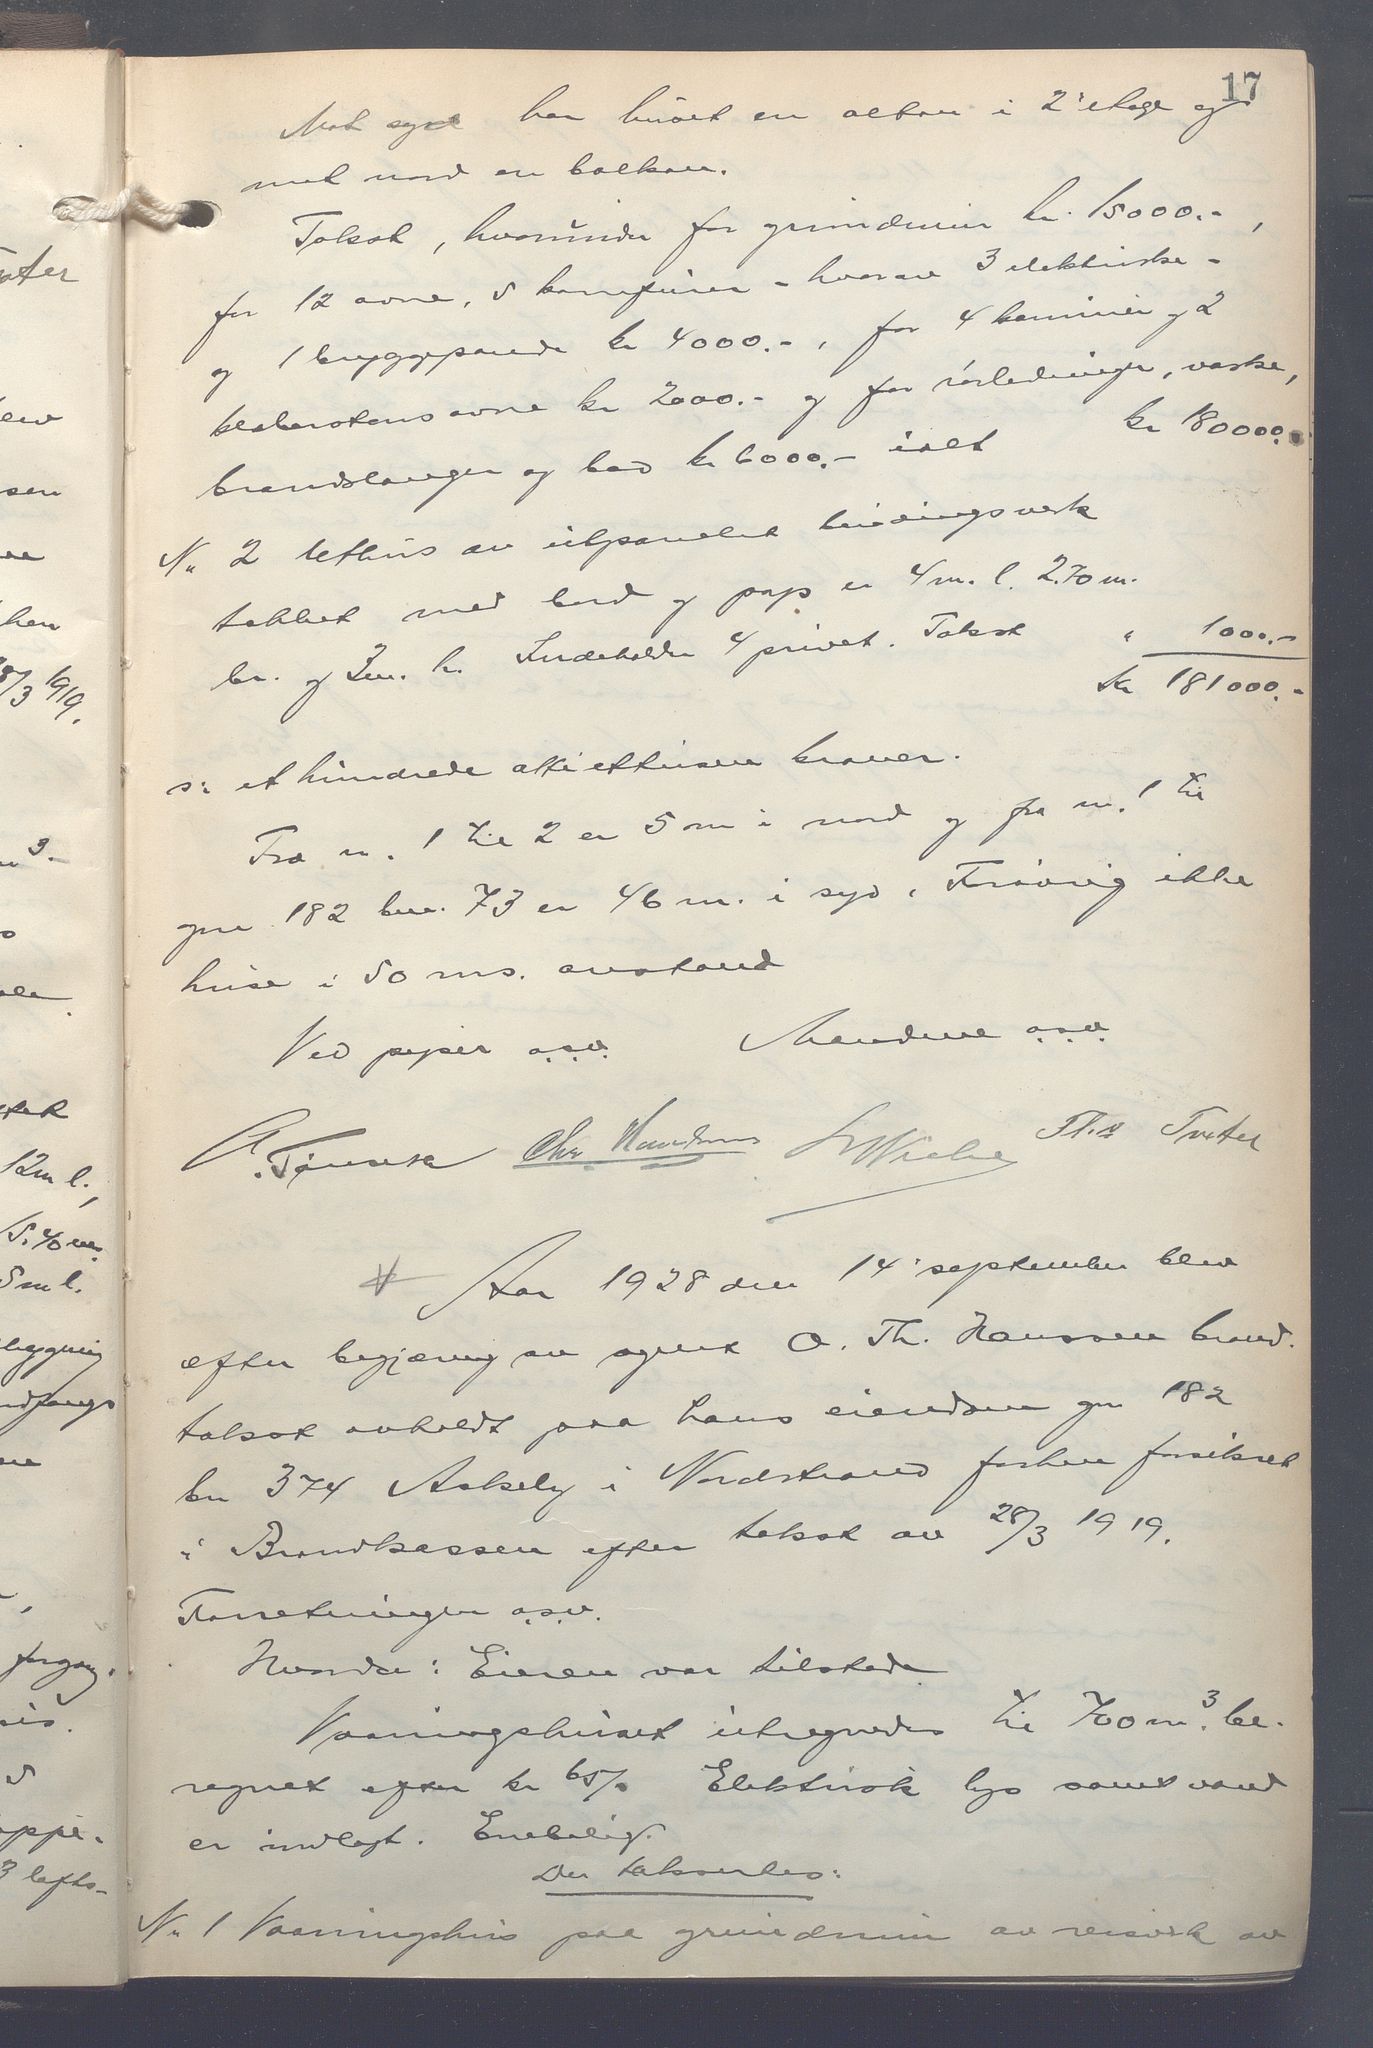 17
Mot syd har huset en altan i 2' etage og
mot nord en balkon.
Takst, hvorunder for grundmur kr. 15000.-,
for 12 ovne, 5 komfurer - hvorav 3 elektriske -
og 1 bryggepande kr 4000.-, for 4 kaminer og 2
kleberstensovne kr 2000.- og for rörledninger, vaske,
brandslanger og bad kr 6000.- ialt kr 180000.-
Nr 2 Uthus av utpanelet bindingsverk
tækket med bord og pap er 4 m. l. 2.70 m.
br. og 3 m. h. Indeholder 4 privet. Takst " 1000.-
Kr 181000.-
s: et hundrede otti ettusen kroner.
Fra nr. 1 til 2 er 5 m i nord og fra nr. 1 til
gnr 182 bnr. 73 er 46 m. i syd. Forövrig ikke
huse i 50 ms. avstand
Ved piper o.s.v. Mændene o.s.v.
A. Chr. Th. Tveter
Aar 1928 den 14' september blev
efter begjæring av agent O. Th. Hanssen brand.
takst avholdt paa hans eiendom gnr 182
bnr 374 Askely i Nordstrand forhen forsikret
i Brandkassen efter takst av 28/3 1919.
Forretningen o.s.v.
Hvorda: Eieren var tilstede
Vaaningshuset utregnedes til 700 m3. be-
regnet efter kr 65/- Elektrisk lys samt vand
er indlagt. Enebolig.
Der takseredes:
Nr 1 Vaaningshus paa grundmur av reisverk av